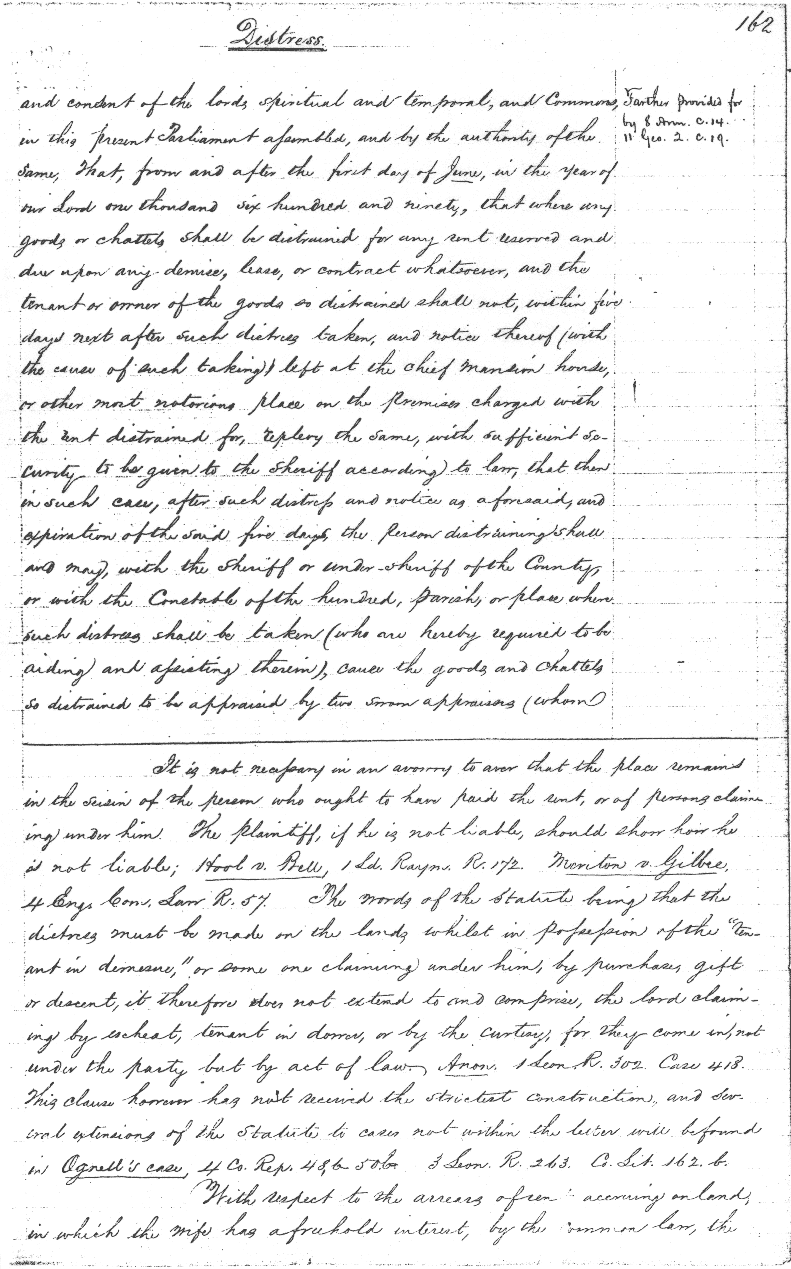 162
Distress.
and consent of the lords spiritual and temporal, and Commons,
in this present Parliament assembled, and by the authority of the
same, That, from and after the first day of June, in the year of
our Lord one thousand six hundred and ninety, that where any
goods or chattels shall be distrained for any rent reserved and
due upon any demise, lease, or contract whatsoever, and the
tenant or owner of the goods so distrained shall not, within five
days next after such distress taken, and notice thereof (with
the cause of such taking) left at the chief mansion house,
or other most notorious place on the premises charged with
the rent distrained for, replevy the same, with sufficient se-
curity to be given to the Sheriff according to law, that then
in such case, after such distress and notice as aforesaid, and
expiration of the said five days, the person distraining shall
and may, with the Sheriff or under-sheriff of the County,
or with the Constable of the hundred, parish, or place where
such distress shall be taken (who are hereby required to be
aiding and assisting therein), cause the goods and chattels
so distrained to be appraised by two sworn appraisers (whom
Farther provided for
by 8 Ann. c. 14.
11 Geo. 2. c. 19.
It is not necessary in an avowry to aver that the place remains
in the seisin of the person who ought to have paid the rent, or of persons claim-
ing under him. The plaintiff, if he is not liable, should show how he
is not liable; Hool v. Bell, 1 Ld. Raym. R. 172. Meriton v. Gilbee,
4 Eng. Com. Law R. 57. The words of the Statute being that the
distress must be made on the lands whilst in possession of the "ten-
ant in demesne," or some one claiming under him, by purchase, gift
or descent, it therefore does not extend to and comprise, the lord claim-
ing by escheat, tenant in dower, or by the curtesy, for they come in, not
under the party but by act of law. Anon. 1 Leon R. 302. Case 418.
This clause however has not received the strictest construction, and sev-
eral extensions of the Statute to cases not within the letter will be found
in Ognell's case, 4 Co. Rep. 48,b 50b. 3 Leon. R. 263. Co. Lit. 162. b.
With respect to the arrears of ren accruing on land,
in which the wife has a freehold interest, by the common law, the